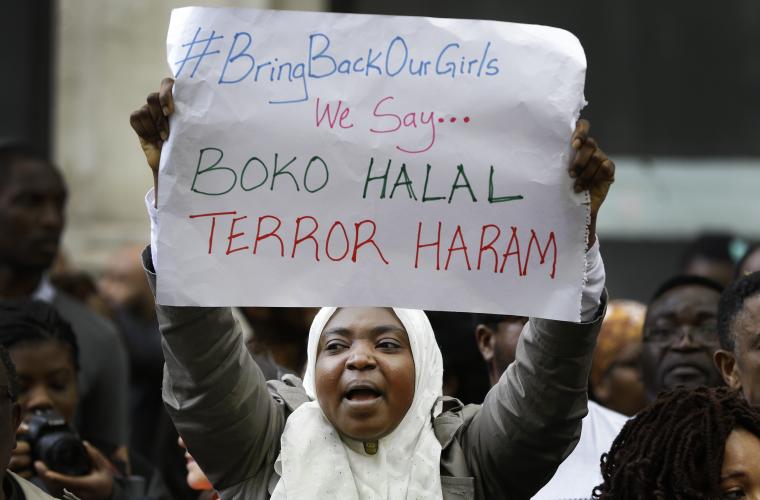 #BringBackOurGirls
We Say...
BOKO HALAL
TERROR HARAM